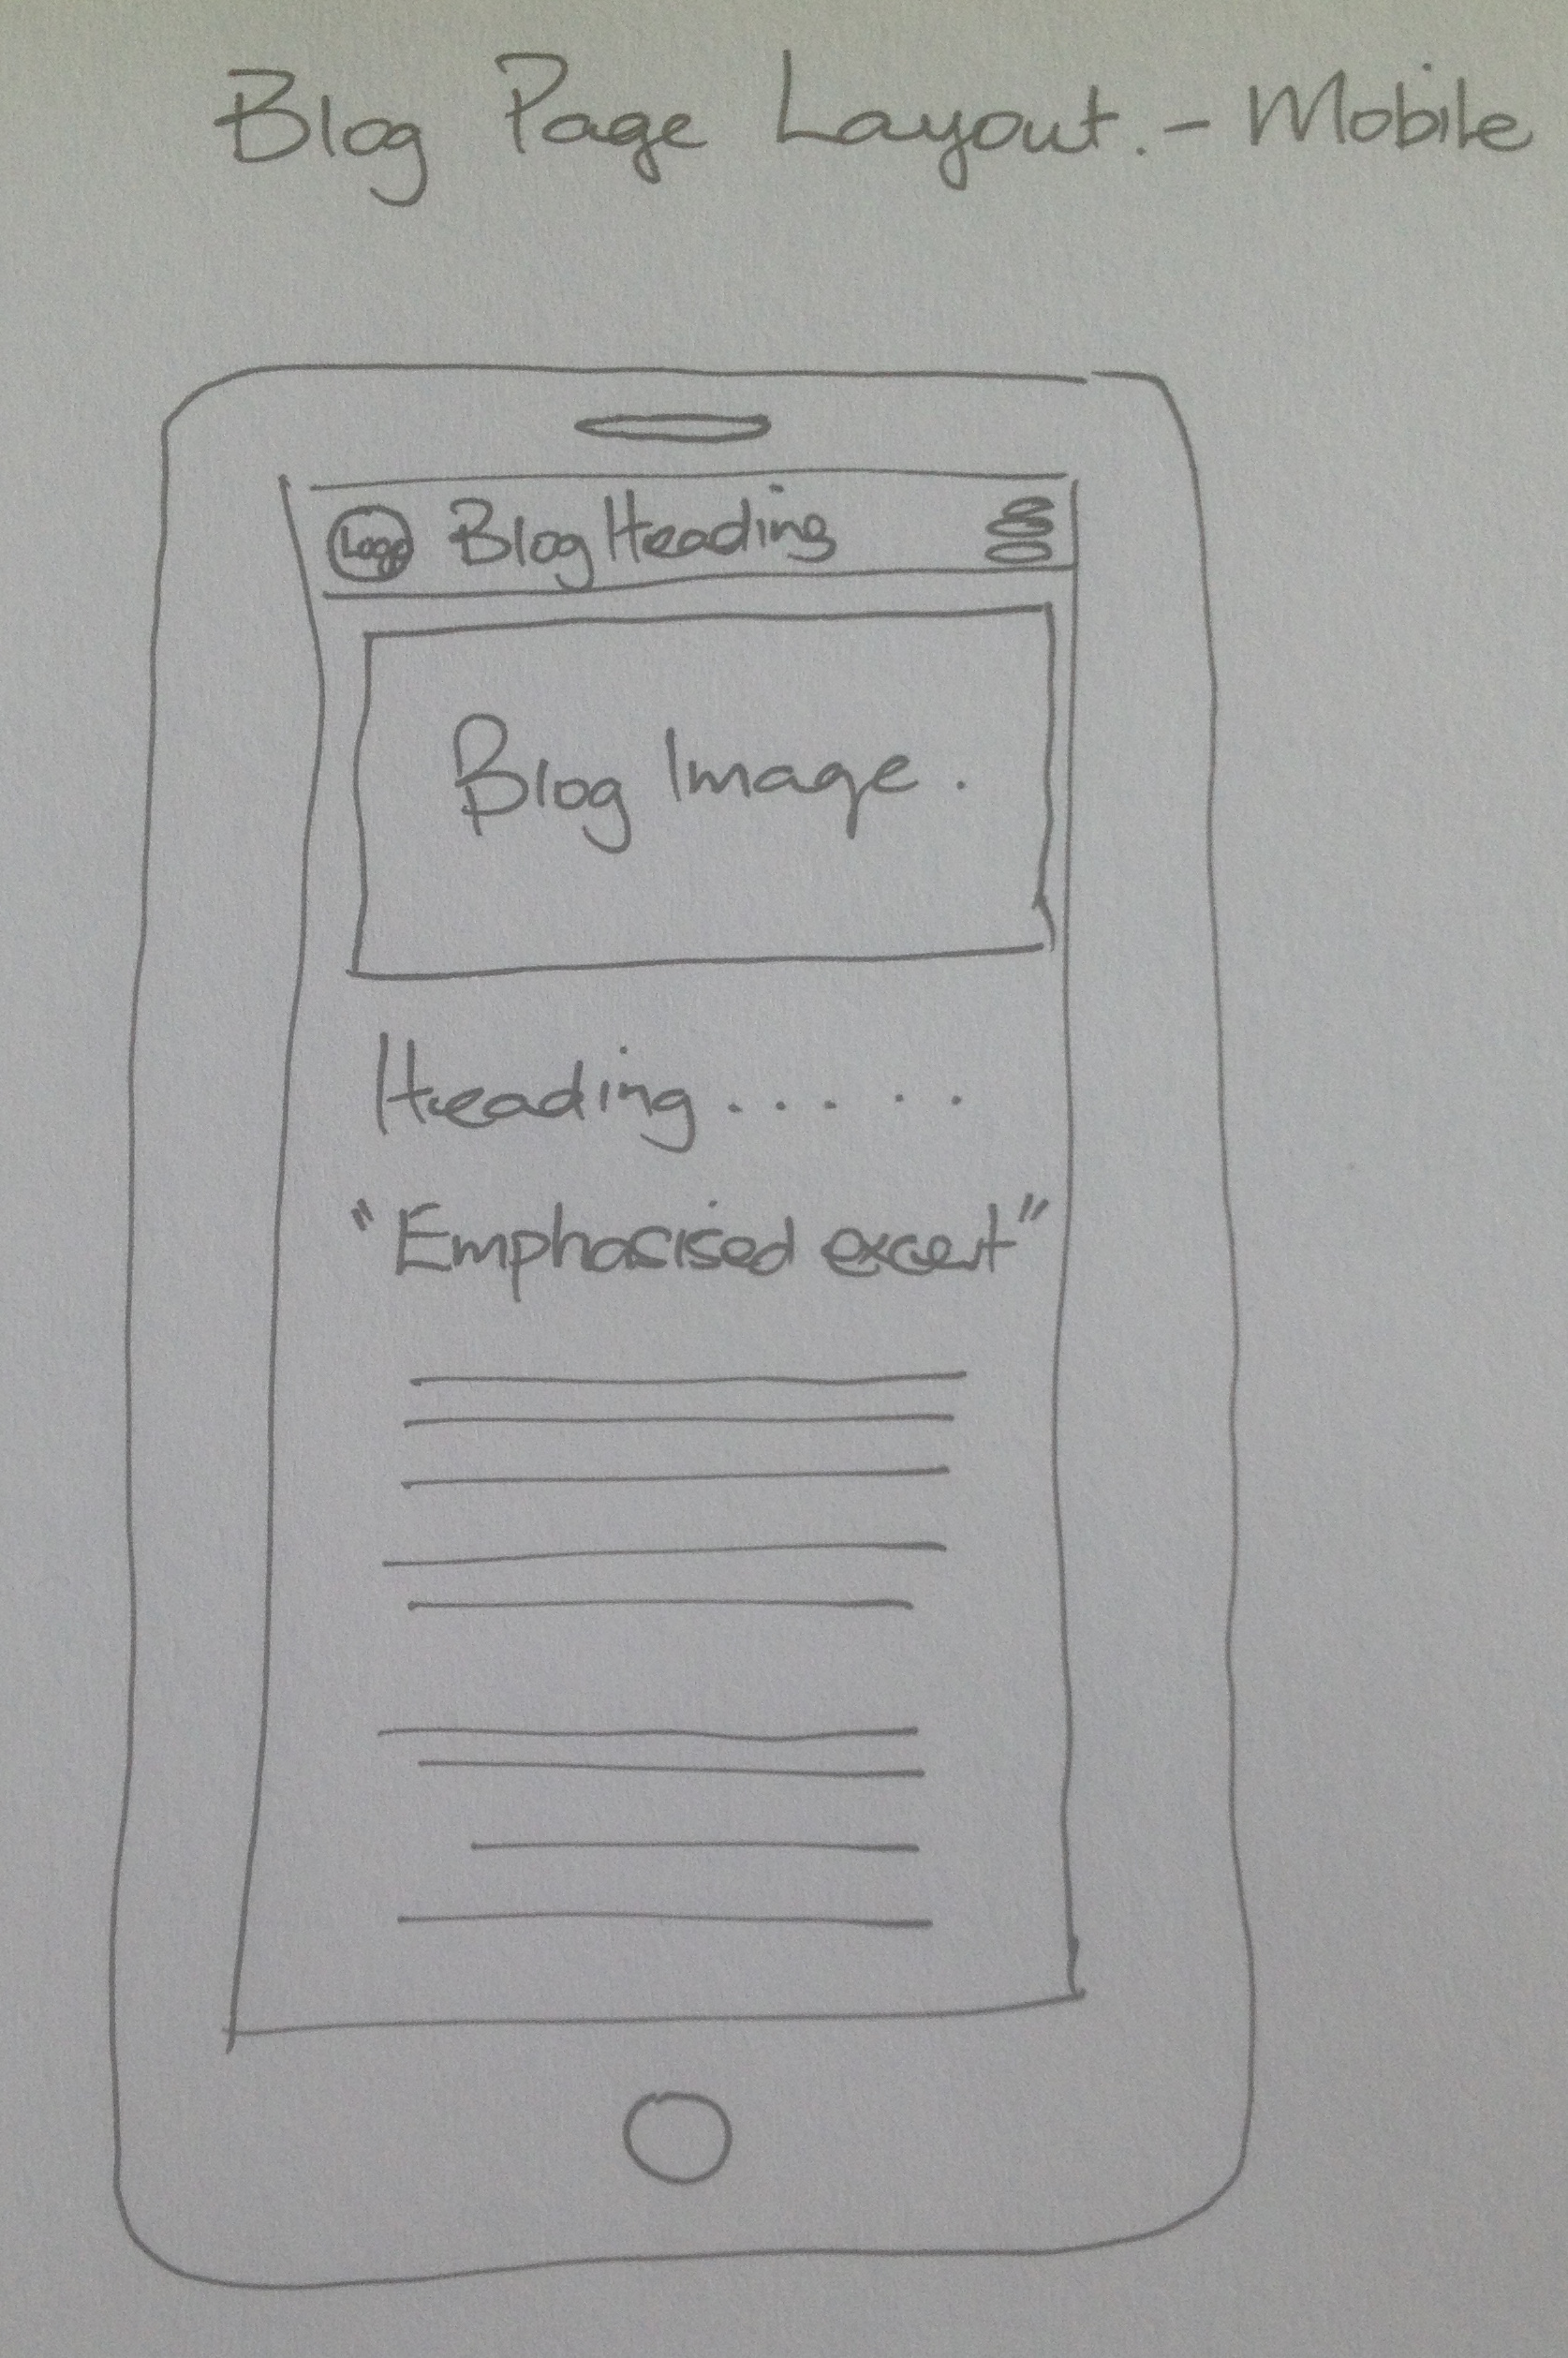 Blog Page Layout. - Mobile
Logo Blog Heading
Blog Image.
Heading......
"Emphasised excert"